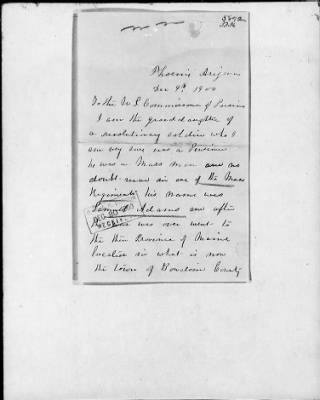 Phoenix Arizona
Dec 9th 1900
To the U.S. Commissioner of Pensions
I am the granddaughter of
a revolutionary soldier who I
am very sure was a Pensioner
he was a Mass man and no
doubt was in one of the Mass
Regiments his name was
Samuel Adams and after
the war was over went to
the then Province of Maine
located in what is now
the town of Bowdoin County